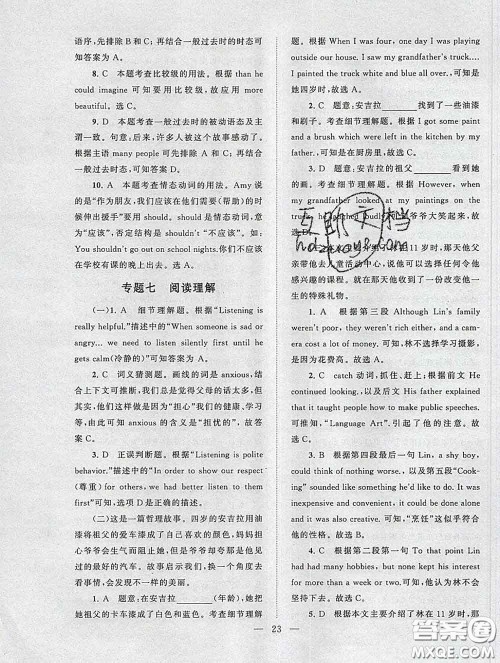 语序,先排除 B 和 C;再结合一般过去时的时态可
知答案为 A。
8. C 本题考查比较级的用法。根据 than he
could imagine 可知要用比较级,故应用 more
beautiful。选 C。
9. D 本题考查一般过去时的被动语态及主
谓一致。句意:后来,许多人被这个故事感动了。
根据主语 many people 可先排除 A 和 C;再结合
一般过去时可知答案 D。
10. A 本题考查情态动词的用法。Amy 说
的“作为朋友,我们应该在他们需要(帮助)的时
候伸出援手”要用 should。should 是情态动词,意
为“应该”,否定结构是 shouldn't “不应该”。如:
You shouldn't go out on school nights. 你们不应该
在学校有课的晚上出去。选 A。
专题七 阅读理解
(一)1. A 细节理解题。根据“Listening is
really helpful.”描述中的“When someone is sad or
angry… we need to listen silently first until he
gets calm(冷静的)”可知答案为 A。
2. C 词义猜测题。画线的词是 anxious,结
合上下文可推断,我们总是觉得父母的话太多,但
其实,他们这样做是因为“担心”我们的健康、学习
等,由此可知 anxious 的含义是“担忧的”,故答
案 C。
3. D 正误判断题。根据“Listening is polite
behavior.”描述中的“In order to show our respect
(尊重) for others, we had better listen to them
first”可知,选项 D 是正确的描述。
(二)这是一篇哲理故事。四岁的安吉拉用油
漆将爷爷的爱车漆成了自己喜欢的颜色,妈妈担
心爷爷会生气而阻止她,但是爷爷却安慰她那是他
见过的最好的汽车。故事启示我们,换一个角度
去看事情,会发现意外的精彩。
1. A 题意:在安吉拉________(年龄),她把
她祖父的卡车漆成了白色和蓝色。考查细节理解
题。根据 When I was four, one day I was playing
outside our house. I saw my grandfather's truck…
I painted the truck white and blue all over, 可知是
她四岁时,故选 A。
2. C 题意:安吉拉________找到了一些油漆
和刷子。考查细节理解题。根据 I got some paint
and a brush which were left in the kitchen by my
father. 可知是在厨房里,故选 C。
3. D 题意:安吉拉的祖父________看到她
的画。考查细节理解题。根据 However, when my
grandfather looked at my paintings on the
爷爷大笑起来,故
选 D。
11 岁时,那天他父
亲带他去儿童活动中心,所以,那天他可以选择令他
感兴趣的课程,就在那天他收到了一份改变他一生
的特殊礼物。
2. A 根据第三段 Although Lin's family
weren't poor, they weren't rich, either, and a cam-
era cost a lot of money. 可知,林不选择学习摄影,
是因为花费高。故选 A。
3. C catch 动词,抓住、赶上;根据前文 He
continued looking…,以及后文 His father explained
that it taught people how to make public speeches.
可知,“Language Art”,引起了他的注意。故
选 C。
4. B 根据第四段最后一句 Lin, a shy boy,
could think of nothing worse,以及第五段“Cook-
ing” sounded like something he'd like to try. It was
inexpensive and it was something he could enjoy
without words. 可知,“烹饪”这似乎符合
他的性格。故选 B。
1. C 根据第二段第一句 To that point Lin
had had many hobbies, but he's not kept to
them. He just hadn't had enough interest. 可知,林不会
坚持他的爱好,故选 C。
5. D 根据本文主要介绍了林在 11 岁时,那
23